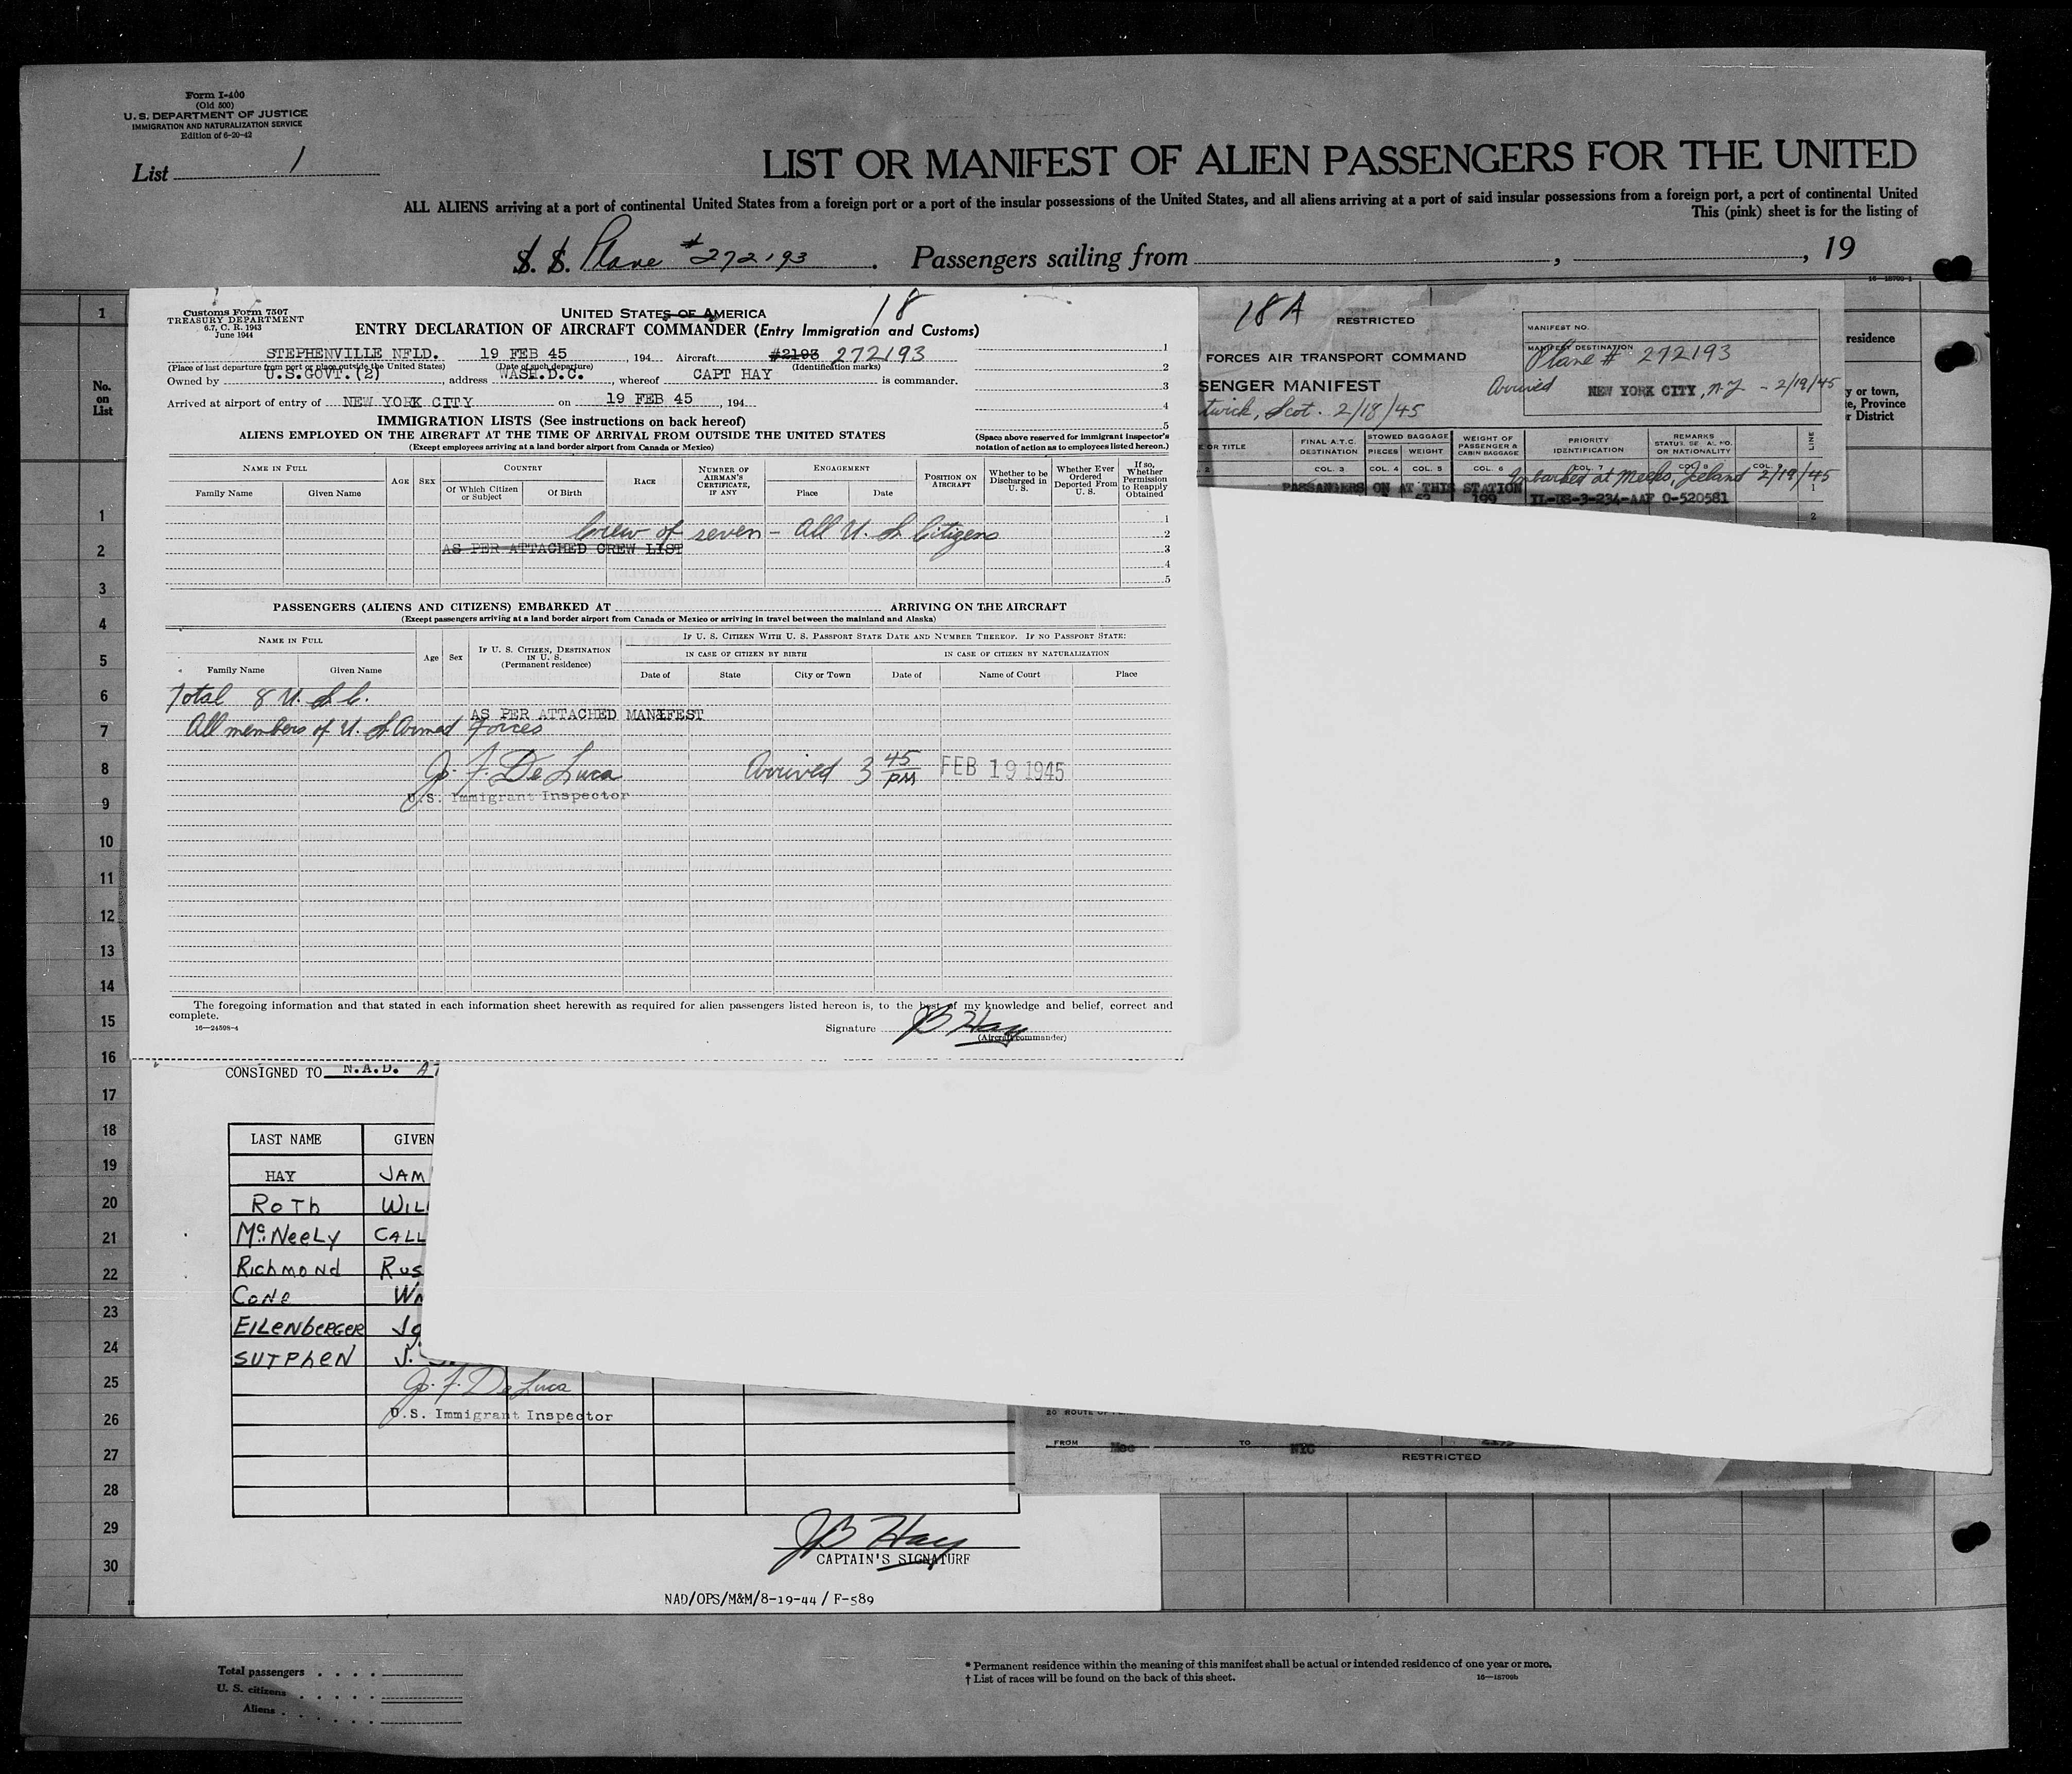 Form I-400
(Old 500)
U. S. DEPARTMENT OF JUSTICE
IMMIGRATION AND NATURALIZATION SERVICE
Edition of 6-20-42
List 1
LIST OR MANIFEST OF ALIEN PASSENGERS FOR THE UNITED
ALL ALIENS arriving at a port of continental United States from a foreign port or a port of the insular possessions of the United States, and all aliens arriving at a port of said insular possessions from a foreign port, a port of continental United
This (pink) sheet is for the listing of
S. S. Plane # 272193 . Passengers sailing from , , 19
Customs Form 7507
TREASURY DEPARTMENT
6.7, C. R. 1943
June 1944
UNITED STATES OF AMERICA
18
ENTRY DECLARATION OF AIRCRAFT COMMANDER (Entry Immigration and Customs)
STEPHENVILLE NFLD. 19 FEB 45 , 194 Aircraft #2193 272193
(Place of last departure from port or place outside the United States) (Date of such departure) (Identification marks)
Owned by U.S.GOVT.(2) , address WASH.D.C. , whereof CAPT HAY is commander.
Arrived at airport of entry of NEW YORK CITY on 19 FEB 45 , 194
1
2
3
4
5
IMMIGRATION LISTS (See instructions on back hereof)
ALIENS EMPLOYED ON THE AIRCRAFT AT THE TIME OF ARRIVAL FROM OUTSIDE THE UNITED STATES
(Except employees arriving at a land border airport from Canada or Mexico)
(Space above reserved for immigrant inspector's notation of action as to employees listed hereon.)
NAME IN FULL
Family Name Given Name
AGE SEX
COUNTRY
Of Which Citizen or Subject Of Birth
RACE
NUMBER OF AIRMAN'S CERTIFICATE, IF ANY
ENGAGEMENT
Place Date
POSITION ON AIRCRAFT
Whether to be Discharged in U. S.
Whether Ever Ordered Deported From U. S.
If so, Whether Permission to Reapply Obtained
1
2
3
4
5
Crew of seven - All U. S. Citizens
AS PER ATTACHED CREW LIST
PASSENGERS (ALIENS AND CITIZENS) EMBARKED AT ARRIVING ON THE AIRCRAFT
(Except passengers arriving at a land border airport from Canada or Mexico or arriving in travel between the mainland and Alaska)
NAME IN FULL
Family Name Given Name
Age Sex
IF U. S. CITIZEN, DESTINATION IN U. S.
(Permanent residence)
IF U. S. CITIZEN WITH U. S. PASSPORT STATE DATE AND NUMBER THEREOF. IF NO PASSPORT STATE:
IN CASE OF CITIZEN BY BIRTH IN CASE OF CITIZEN BY NATURALIZATION
Date of State City or Town Date of Name of Court Place
Total 8 U. S. C.
AS PER ATTACHED MANIFEST
All members of U. S. Armed Forces
J. F. De Luca Arrived 3 45 PM FEB 19 1945
U.S. Immigrant Inspector
The foregoing information and that stated in each information sheet herewith as required for alien passengers listed hereon is, to the best of my knowledge and belief, correct and
complete.
16—24598-4
Signature JB Hay
(Aircraft commander)
18A RESTRICTED
FORCES AIR TRANSPORT COMMAND
SENGER MANIFEST
twick, Scot. 2/18/45
MANIFEST NO.
MANIFEST DESTINATION
Plane # 272193
Arrived NEW YORK CITY, N.Y - 2/19/45
E OR TITLE
FINAL A.T.C. DESTINATION
STOWED BAGGAGE
PIECES WEIGHT
WEIGHT OF PASSENGER & CABIN BAGGAGE
PRIORITY IDENTIFICATION
REMARKS
OR NATIONALITY
LINE
2 COL. 3 COL. 4 COL. 5 COL. 6 COL. 7
Embarked at Meeks, Iceland 2/19/45
PASSANGERS ON AT THIS STATION
199 IL-US-3-234-AAF O-520581
1
2
residence
y or town,
te, Province
r District
No. on List
1
1
2
3
4
5
6
7
8
9
10
11
12
13
14
15
16
17
18
19
20
21
22
23
24
25
26
27
28
29
30
CONSIGNED TO N.A.D.
LAST NAME GIVEN
HAY JAM
Roth WIL
McNeely CALL
Richmond Rus
Cone Wm
EILenbERGER Jo
SUTPHEN J.
J. F. De Luca
U.S. Immigrant Inspector
JB Hay
CAPTAIN'S SIGNATURE
NAD/OPS/M&M/8-19-44 / F-589
FROM Mee TO NYC
RESTRICTED
Total passengers
U. S. citizens
Aliens
* Permanent residence within the meaning of this manifest shall be actual or intended residence of one year or more.
† List of races will be found on the back of this sheet.